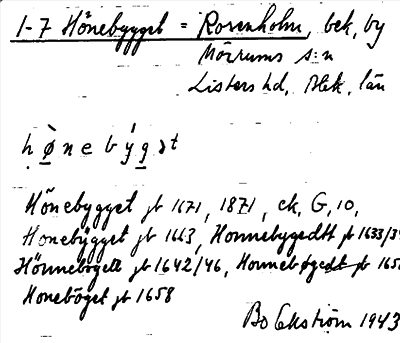 1-7 Hönebygget = Rosenholm, bek, by
Mörrums s:n
Listers hd, Blek, län
h ö n e b y g ə t
Hönebygget jb 1671, 1871, ek, G, 10,
Honebÿgget jb 1663, Honnebygedtt jb 1633/34
Hönnebögett jb 1642/46, Honnebøgedt jb 165
Honeböget jb 1658
Bo Ekström 1943